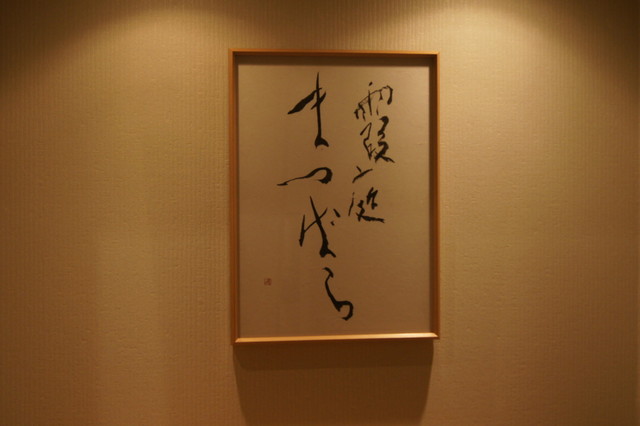 霞 庭
まつばら